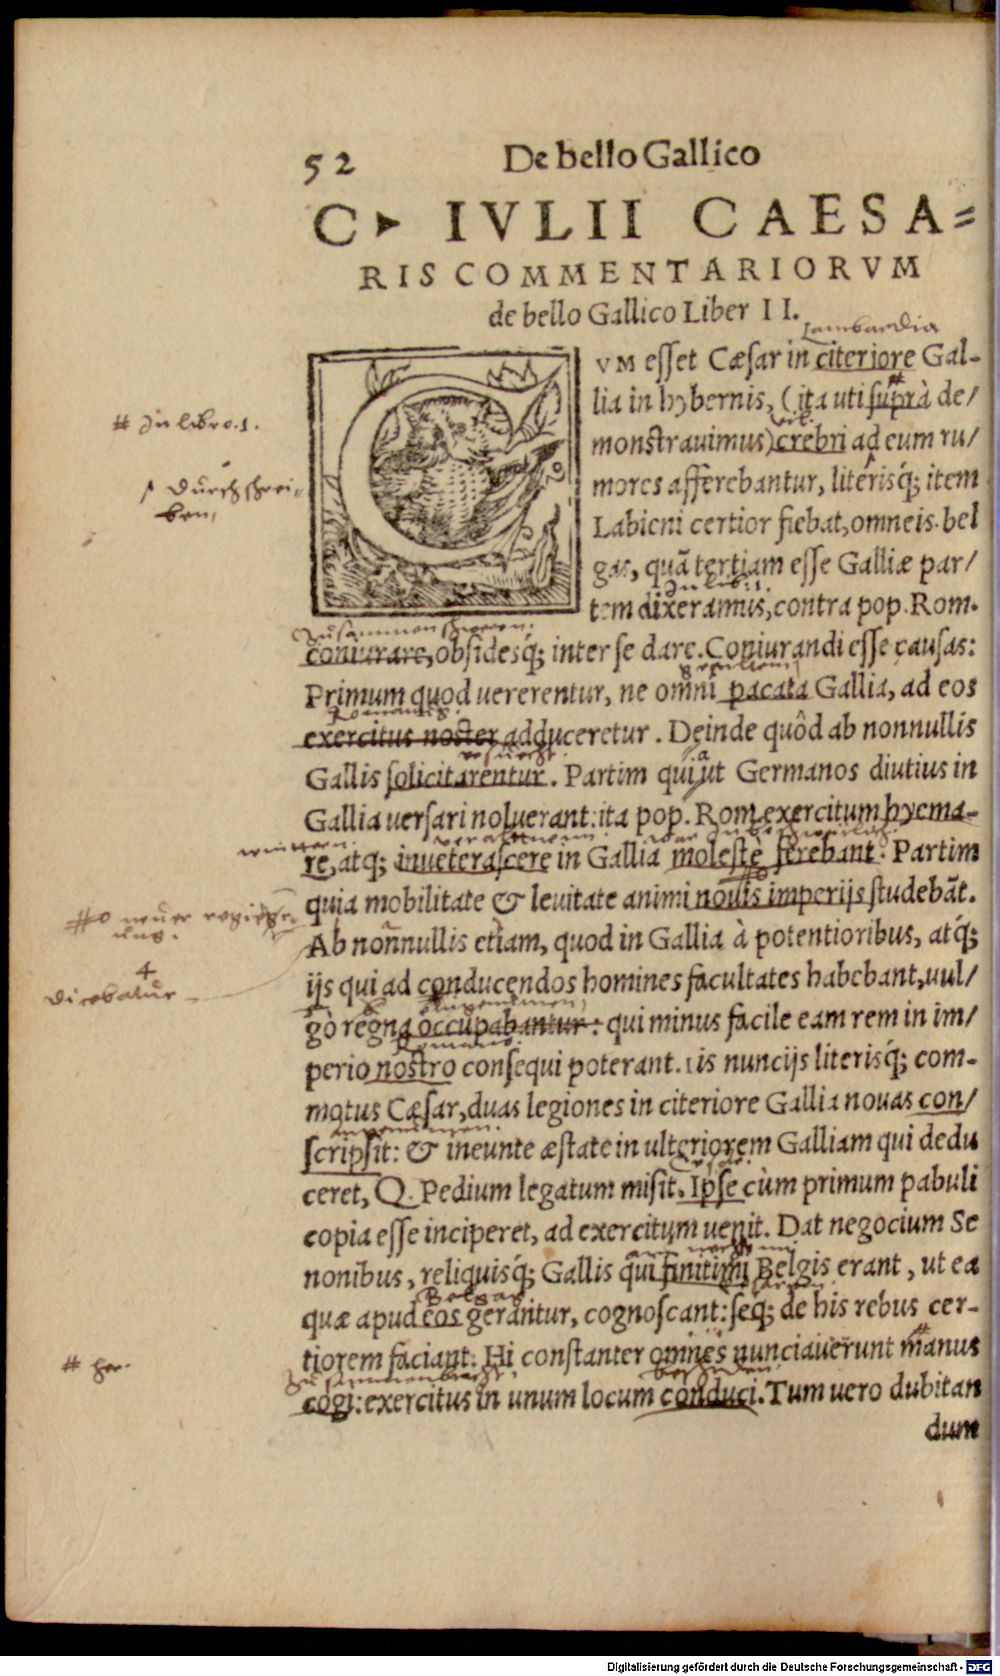 52 De bello Gallico
C. IVLII CAESA=
RIS COMMENTARIORVM
de bello Gallico Liber II.
Lambardia
CVM esset Cæsar in citeriore Gal-
lia in hybernis, (ita uti suprà de/
# In libro. 1.
monstrauimus) crebri ad eum ru/
mores afferebantur, literisq́; item
durch schrei=
ben,
Labieni certior fiebat, omneis bel
gas, quā tertiam esse Galliæ par/
In lib: 1.
tem dixeramus, contra pop. Rom.
Zusammen schweren.
coniurare, obsidesq́; inter se dare. Coniurandi esse causas:
Primum quod uererentur, ne omni pacata Gallia, ad eos
Romanus.
exercitus noster adduceretur. Deinde quôd ab nonnullis
Gallis solicitarentur. Partim qui, ut Germanos diutius in
Gallia uersari noluerant: ita pop. Rom. exercitum hyema-
wintern.
re, atq́; inueterascere in Gallia molestè ferebant. Partim
quia mobilitate & leuitate animi nouis imperijs studebāt.
#o neuer regieru=
ung.
Ab nonnullis etiam, quod in Gallia à potentioribus, atq́;
ijs qui ad conducendos homines facultates habebant, uul/
4
dicebatur
gò regna occupabantur: qui minus facile eam rem in im/
Romano.
perio nostro consequi poterant. is nuncijs literisq́; com-
motus Cæsar, duas legiones in citeriore Gallia nouas con/
angenumen.
scripsit: & ineunte æstate in ulteriorem Galliam qui dedu
Cesar.
ceret, Q. Pedium legatum misit. Ipse cùm primum pabuli
copia esse inciperet, ad exercitum uenit. Dat negocium Se
nonibus, reliquisq́; Gallis qui finitimi Belgis erant, ut ea
Belgas
quæ apud eos gerantur, cognoscant: seq́; de his rebus cer-
tiorem faciant. Hi constanter omnes nunciauerunt manus
# her.
Zusammenbracht.
cogi: exercitus in unum locum conduci. Tum uero dubitan
dum
Digitalisierung gefördert durch die Deutsche Forschungsgemeinschaft - DFG